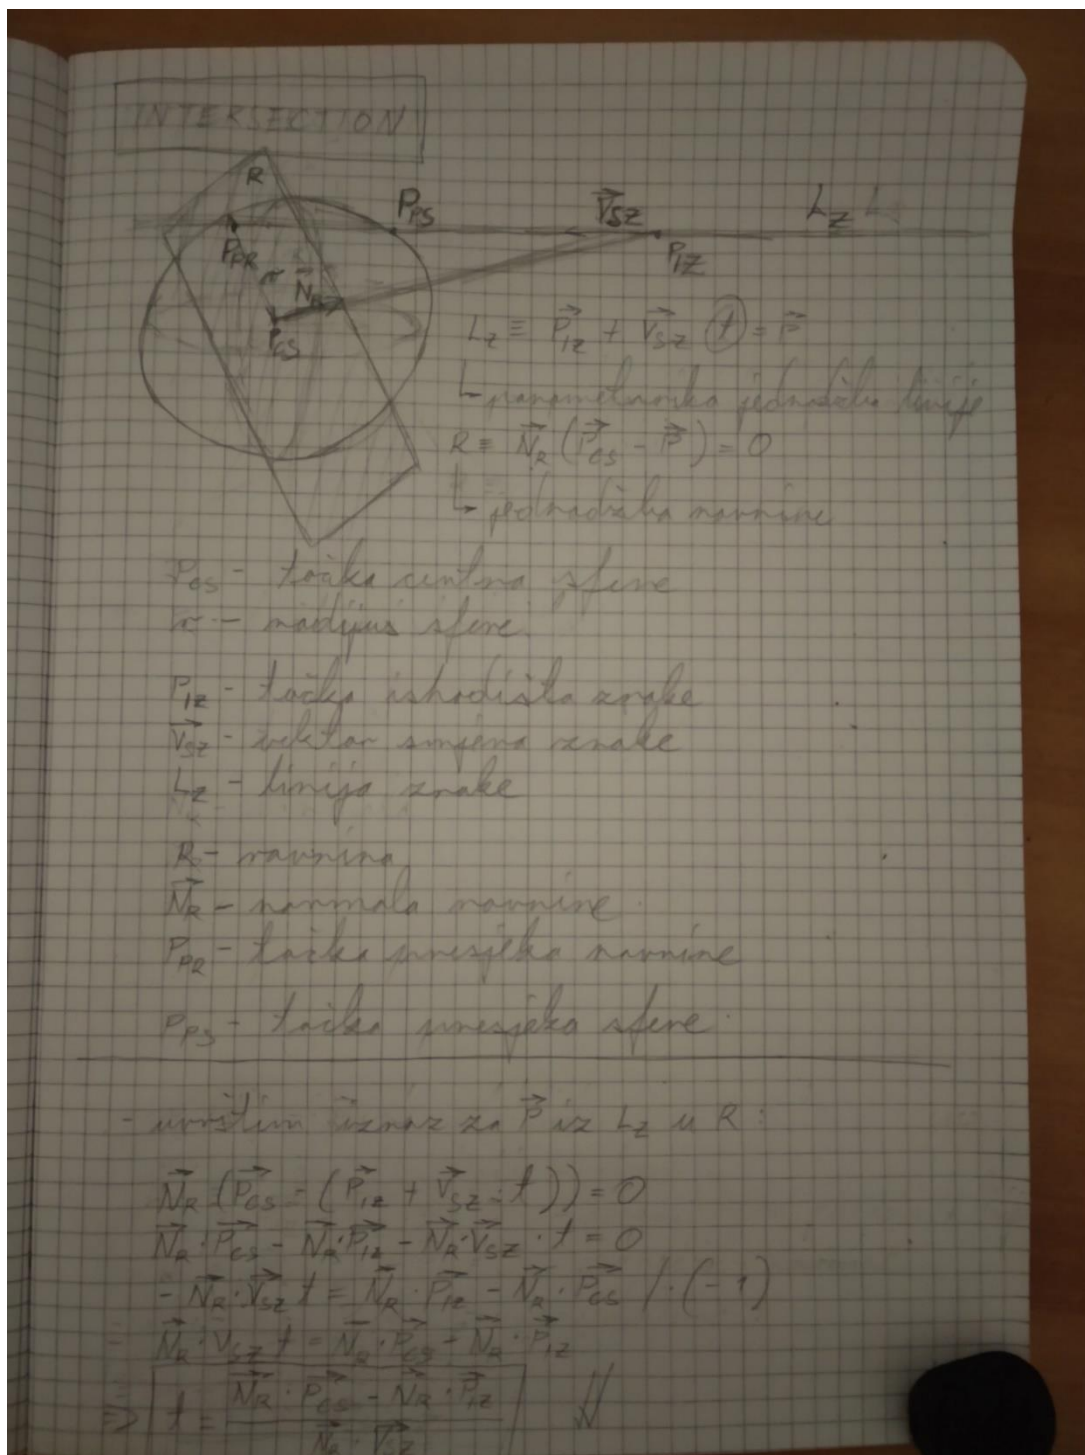 INTERSECTION
R
P_PS
V⃗_SZ
L_Z
P_PR
P_IZ
r
N⃗_R
P_CS
L_Z ≡ P⃗_IZ + V⃗_SZ t = P⃗
parametarska jednadžba linije
R ≡ N⃗_R (P⃗_CS - P⃗) = 0
jednadžba ravnine
P_CS - točka centra sfere
r - radijus sfere
P_IZ - točka ishodišta zrake
V⃗_SZ - vektor smjera zrake
L_Z - linija zrake
R - ravnina
N⃗_R - normala ravnine
P_PR - točka presjeka ravnine
P_PS - točka presjeka sfere
- uvrstim izraz za P⃗ iz L_Z u R:
N⃗_R (P⃗_CS - (P⃗_IZ + V⃗_SZ · t)) = 0
N⃗_R · P⃗_CS - N⃗_R · P⃗_IZ - N⃗_R · V⃗_SZ · t = 0
- N⃗_R · V⃗_SZ t = N⃗_R · P⃗_IZ - N⃗_R · P⃗_CS / · (-1)
N⃗_R · V⃗_SZ t = N⃗_R · P⃗_CS - N⃗_R · P⃗_IZ
=> t = N⃗_R · P⃗_CS - N⃗_R · P⃗_IZ
N⃗_R · V⃗_SZ